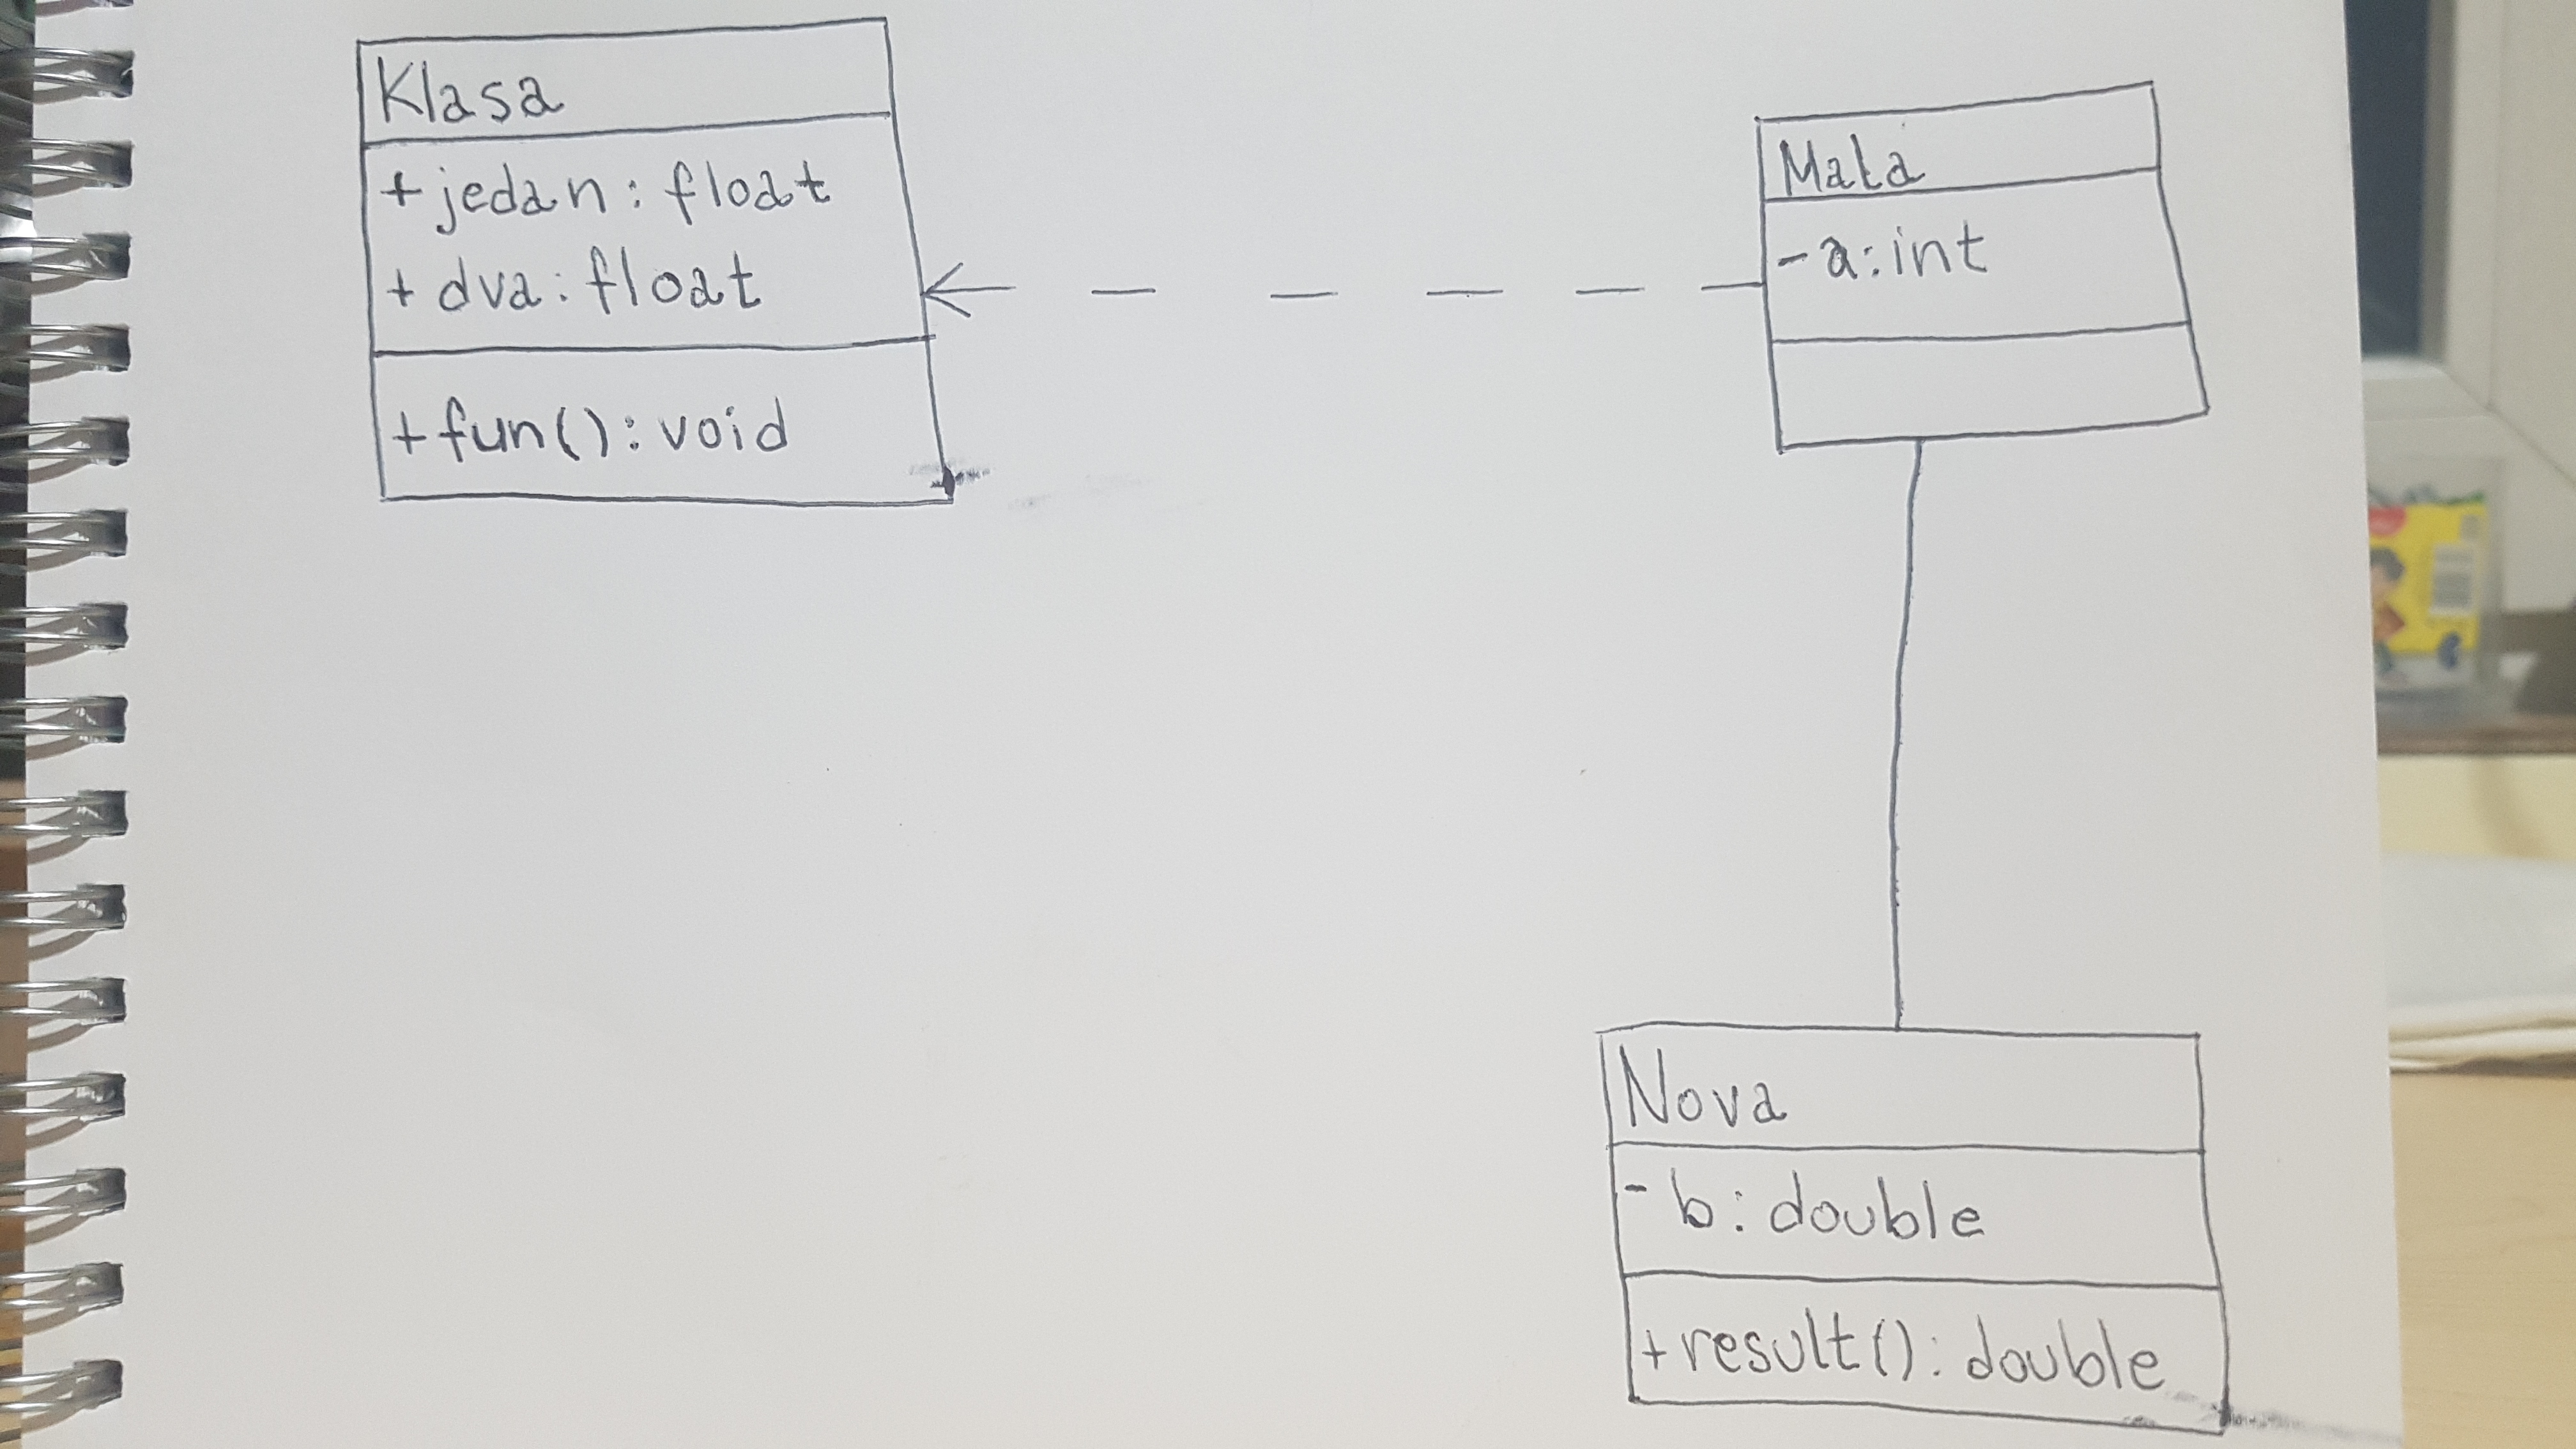 Klasa
+ jedan: float
+ dva: float
+ fun(): void
Mala
- a: int
Nova
- b: double
+ result(): double